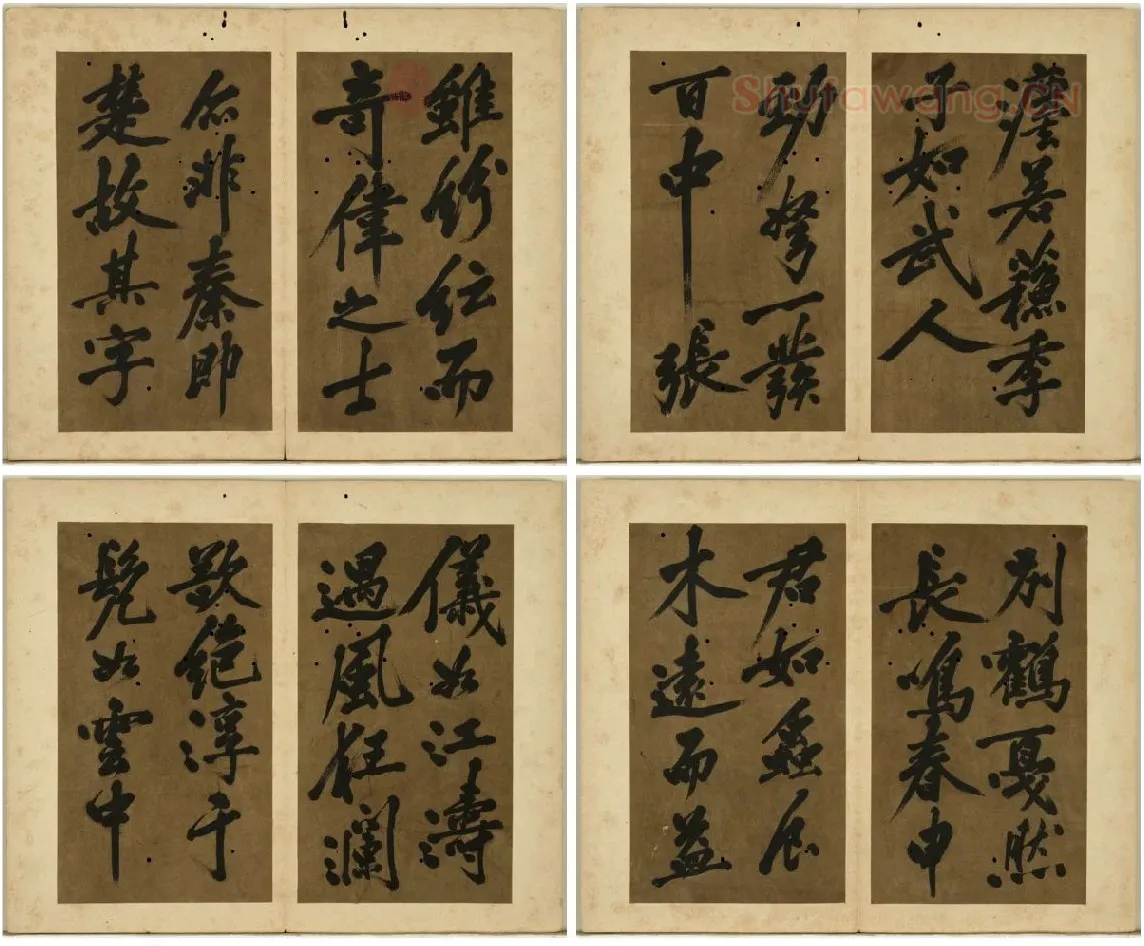 雖紛紜而
奇偉之士
亦非秦即
楚故其字
若蘓季
子如武人
勁弩一發
百中張
儀如江濤
遇風狂瀾
欲絕淳于
髡如雲中
別鶴戛然
長鳴春申
君如
木遠而益
Shufawang.CN